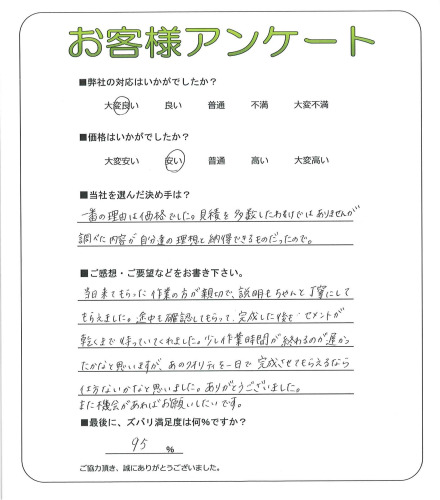 お客様アンケート
■弊社の対応はいかがでしたか？
大変良い　良い　普通　不満　大変不満
■価格はいかがでしたか？
大変安い　安い　普通　高い　大変高い
■当社を選んだ決め手は？
一番の理由は価格でした。見積を多数したわけではありませんが
調べた内容が自分達の理想と納得できるものだったので。
■ご感想・ご要望などをお書き下さい。
当日来てもらった作業の方が親切で、説明もちゃんと丁寧にして
もらえました。途中も確認してもらって、完成した後も、セメントが
乾くまで待っていてくれました。少し作業時間が終わるのが遅かっ
たかなと思いますが、あのクオリティを一日で完成させてもらえるなら
仕方ないかなと思いました。ありがとうございました。
また機会があればお願いしたいです。
■最後に、ズバリ満足度は何%ですか？
95 %
ご協力頂き、誠にありがとうございました。